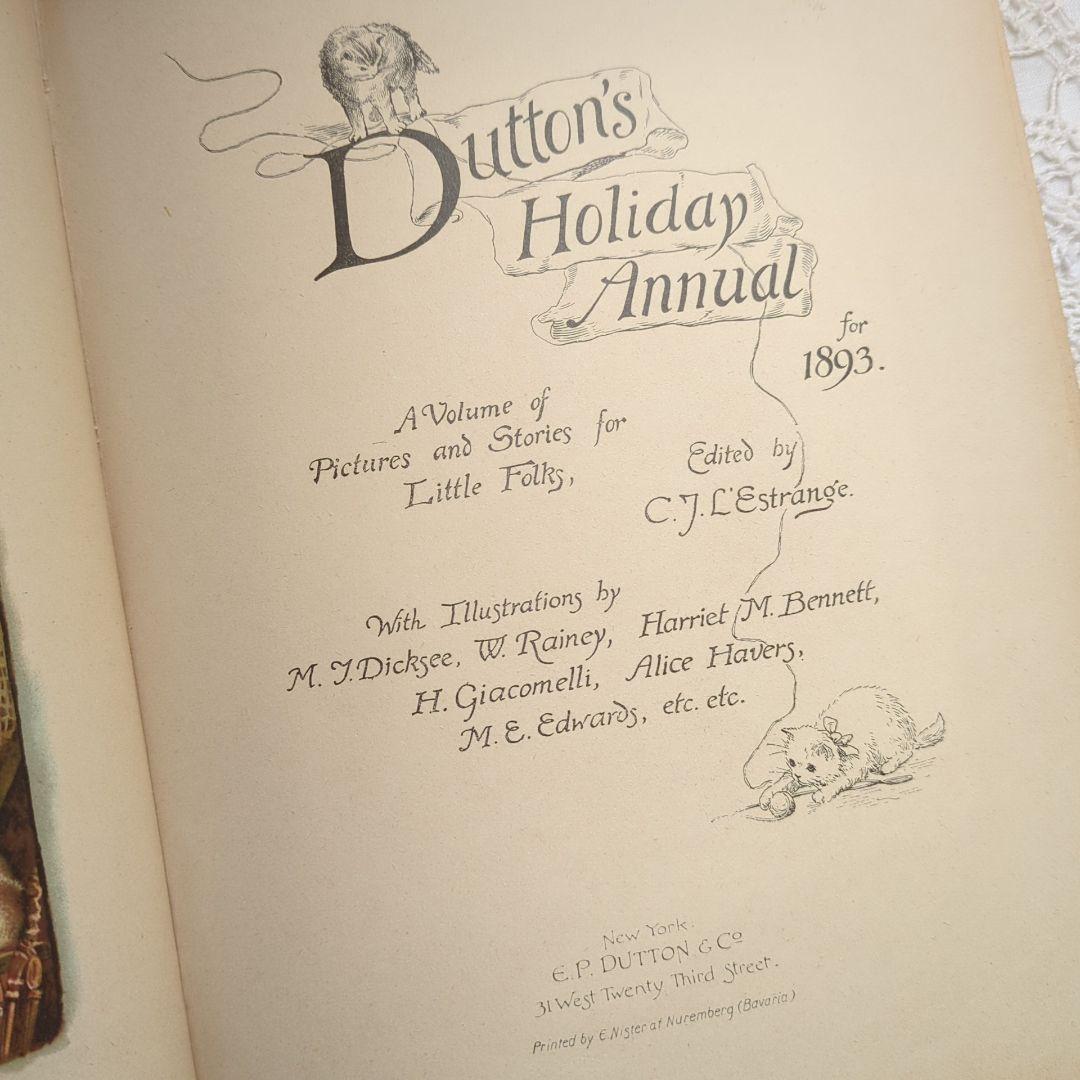 Dutton's
Holiday
Annual
for
1893.
A Volume of
Pictures and Stories for
Little Folks,
Edited by
C. J. L'Estrange.
With Illustrations by
M. J. Dicksee, W. Rainey, Harriet M. Bennett,
H. Giacomelli, Alice Havers,
M. E. Edwards, etc. etc.
New York.
E. P. DUTTON & Co
31 West Twenty Third Street.
Printed by E. Nister at Nuremberg (Bavaria)